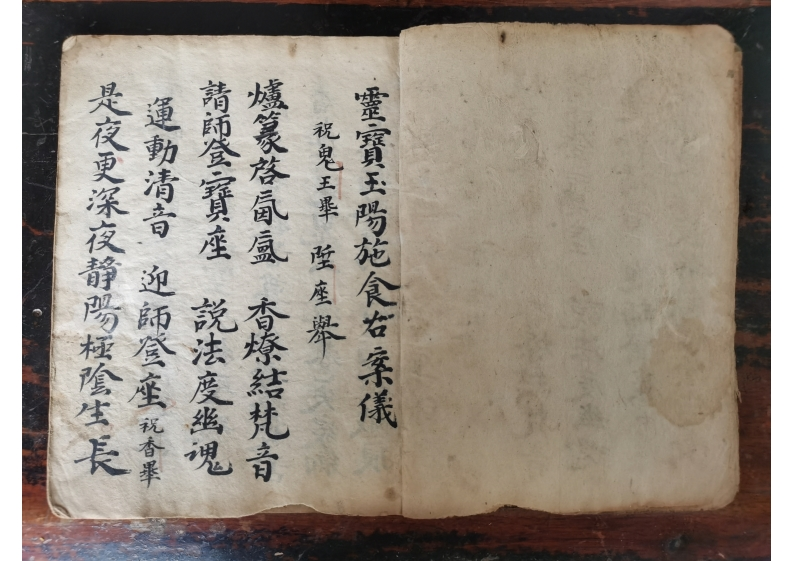 靈寶玉陽施食右案儀
祝鬼王畢 陞座舉
爐篆啓氤氲 香燎結梵音
請師登寶座 說法度幽魂
運動清音 迎師登座 祝香畢
是夜更深夜靜陽極陰生長